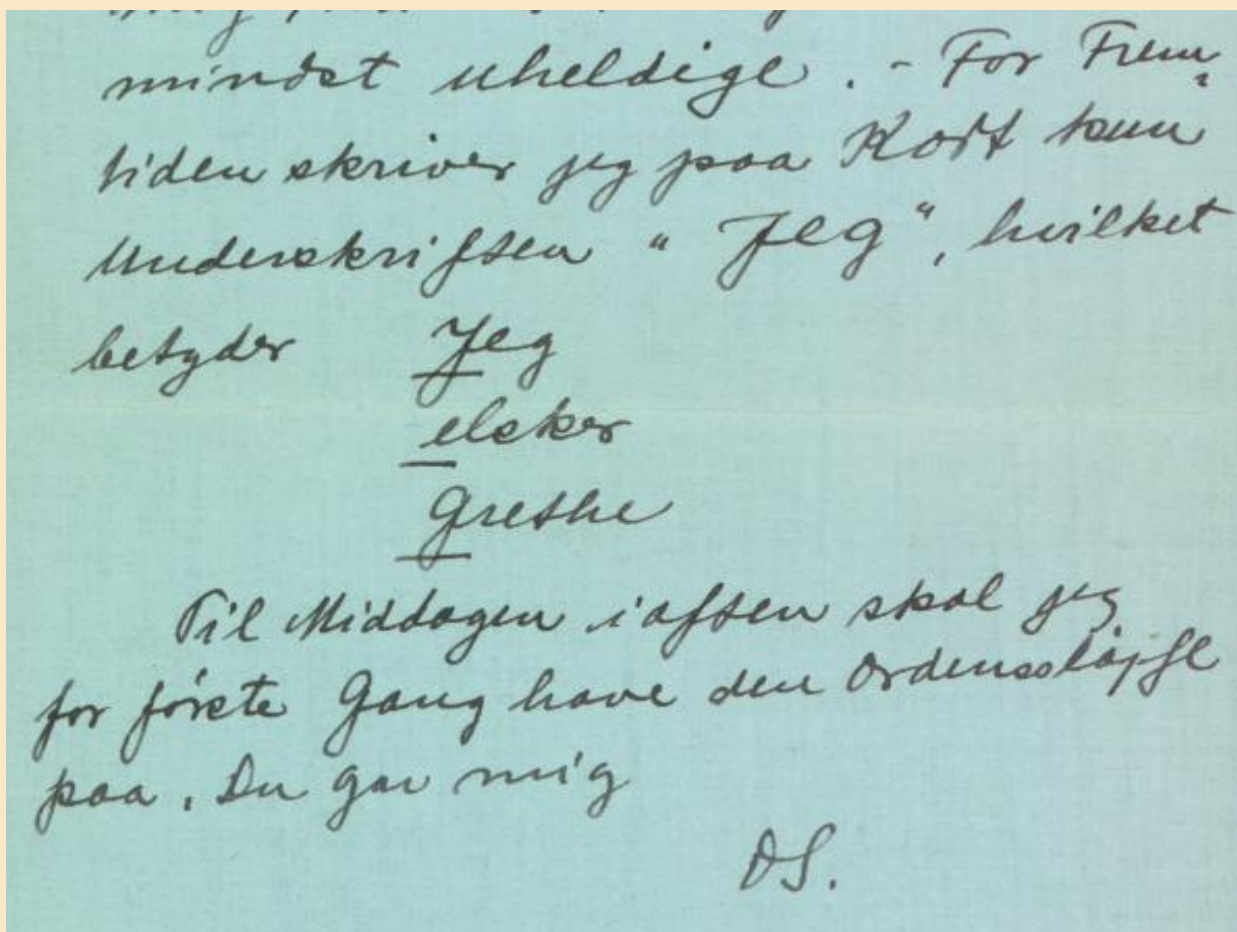 mindst uheldige. - For Frem-
tiden skriver jeg paa Kort kun
Underskriften "Jeg", hvilket
betyder Jeg
elsker
Grethe
Til Middagen iaften skal jeg
for förste Gang have den Ordenssløjfe
paa, Du gav mig
DS.